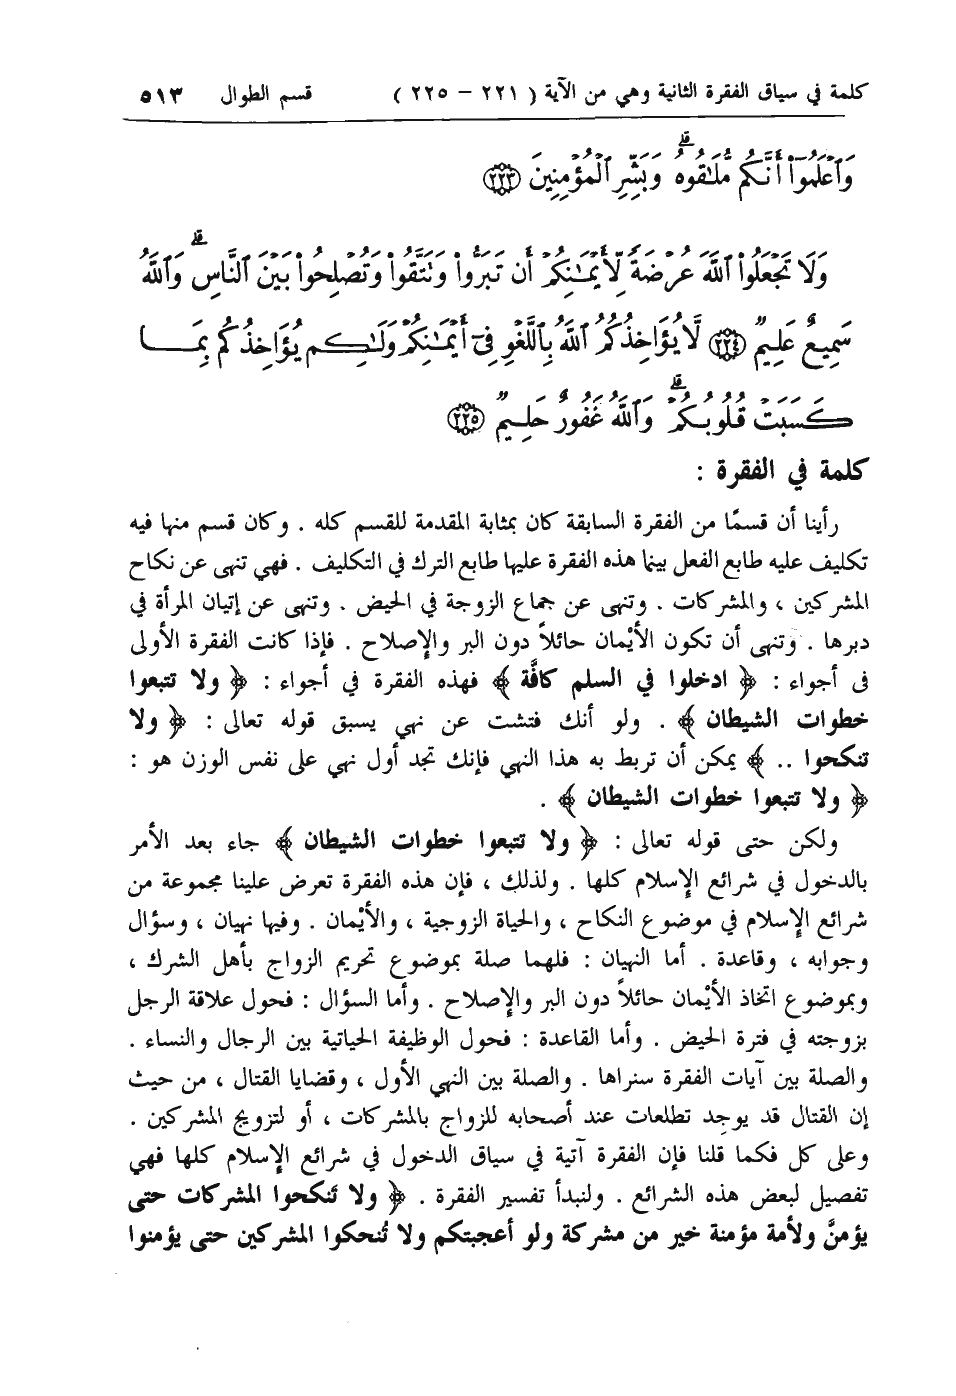 كلمة في سياق الفقرة الثانية وهي من الآية ( ٢٢١ – ٢٢٥ ) قسم الطوال ٥١٣
وَٱعْلَمُوٓا۟ أَنَّكُم مُّلَـٰقُوهُ ۗ وَبَشِّرِ ٱلْمُؤْمِنِينَ ۝٢٢٣
وَلَا تَجْعَلُوا۟ ٱللَّهَ عُرْضَةً لِّأَيْمَـٰنِكُمْ أَن تَبَرُّوا۟ وَتَتَّقُوا۟ وَتُصْلِحُوا۟ بَيْنَ ٱلنَّاسِ ۗ وَٱللَّهُ
سَمِيعٌ عَلِيمٌ ۝٢٢٤ لَّا يُؤَاخِذُكُمُ ٱللَّهُ بِٱللَّغْوِ فِىٓ أَيْمَـٰنِكُمْ وَلَـٰكِن يُؤَاخِذُكُم بِمَا
كَسَبَتْ قُلُوبُكُمْ ۗ وَٱللَّهُ غَفُورٌ حَلِيمٌ ۝٢٢٥
كلمة في الفقرة :
رأينا أن قسمًا من الفقرة السابقة كان بمثابة المقدمة للقسم كله . وكان قسم منها فيه
تكليف عليه طابع الفعل بينما هذه الفقرة عليها طابع الترك في التكليف . فهي تنهى عن نكاح
المشركين ، والمشركات . وتنهى عن جماع الزوجة في الحيض . وتنهى عن إتيان المرأة في
دبرها . وتنهى أن تكون الأيْمان حائلاً دون البر والإصلاح . فإذا كانت الفقرة الأولى
فى أجواء : ﴿ ادخلوا في السلم كافَّة ﴾ فهذه الفقرة في أجواء : ﴿ ولا تتبعوا
خطوات الشيطان ﴾ . ولو أنك فتشت عن نهي يسبق قوله تعالى : ﴿ ولا
تنكحوا .. ﴾ يمكن أن تربط به هذا النهي فإنك تجد أول نهي على نفس الوزن هو :
﴿ ولا تتبعوا خطوات الشيطان ﴾ .
ولكن حتى قوله تعالى : ﴿ ولا تتبعوا خطوات الشيطان ﴾ جاء بعد الأمر
بالدخول في شرائع الإسلام كلها . ولذلك ، فإن هذه الفقرة تعرض علينا مجموعة من
شرائع الإسلام في موضوع النكاح ، والحياة الزوجية ، والأيْمان . وفيها نهيان ، وسؤال
وجوابه ، وقاعدة . أما النهيان : فلهما صلة بموضوع تحريم الزواج بأهل الشرك ،
وبموضوع اتخاذ الأيْمان حائلاً دون البر والإصلاح . وأما السؤال : فحول علاقة الرجل
بزوجته في فترة الحيض . وأما القاعدة : فحول الوظيفة الحياتية بين الرجال والنساء .
والصلة بين آيات الفقرة سنراها . والصلة بين النهي الأول ، وقضايا القتال ، من حيث
إن القتال قد يوجد تطلعات عند أصحابه للزواج بالمشركات ، أو لتزويج المشركين .
وعلى كل فكما قلنا فإن الفقرة آتية في سياق الدخول في شرائع الإسلام كلها فهي
تفصيل لبعض هذه الشرائع . ولنبدأ تفسير الفقرة . ﴿ ولا تَنكحوا المشركات حتى
يؤمنَّ ولأمة مؤمنة خير من مشركة ولو أعجبتكم ولا تُنحكوا المشركين حتى يؤمنوا